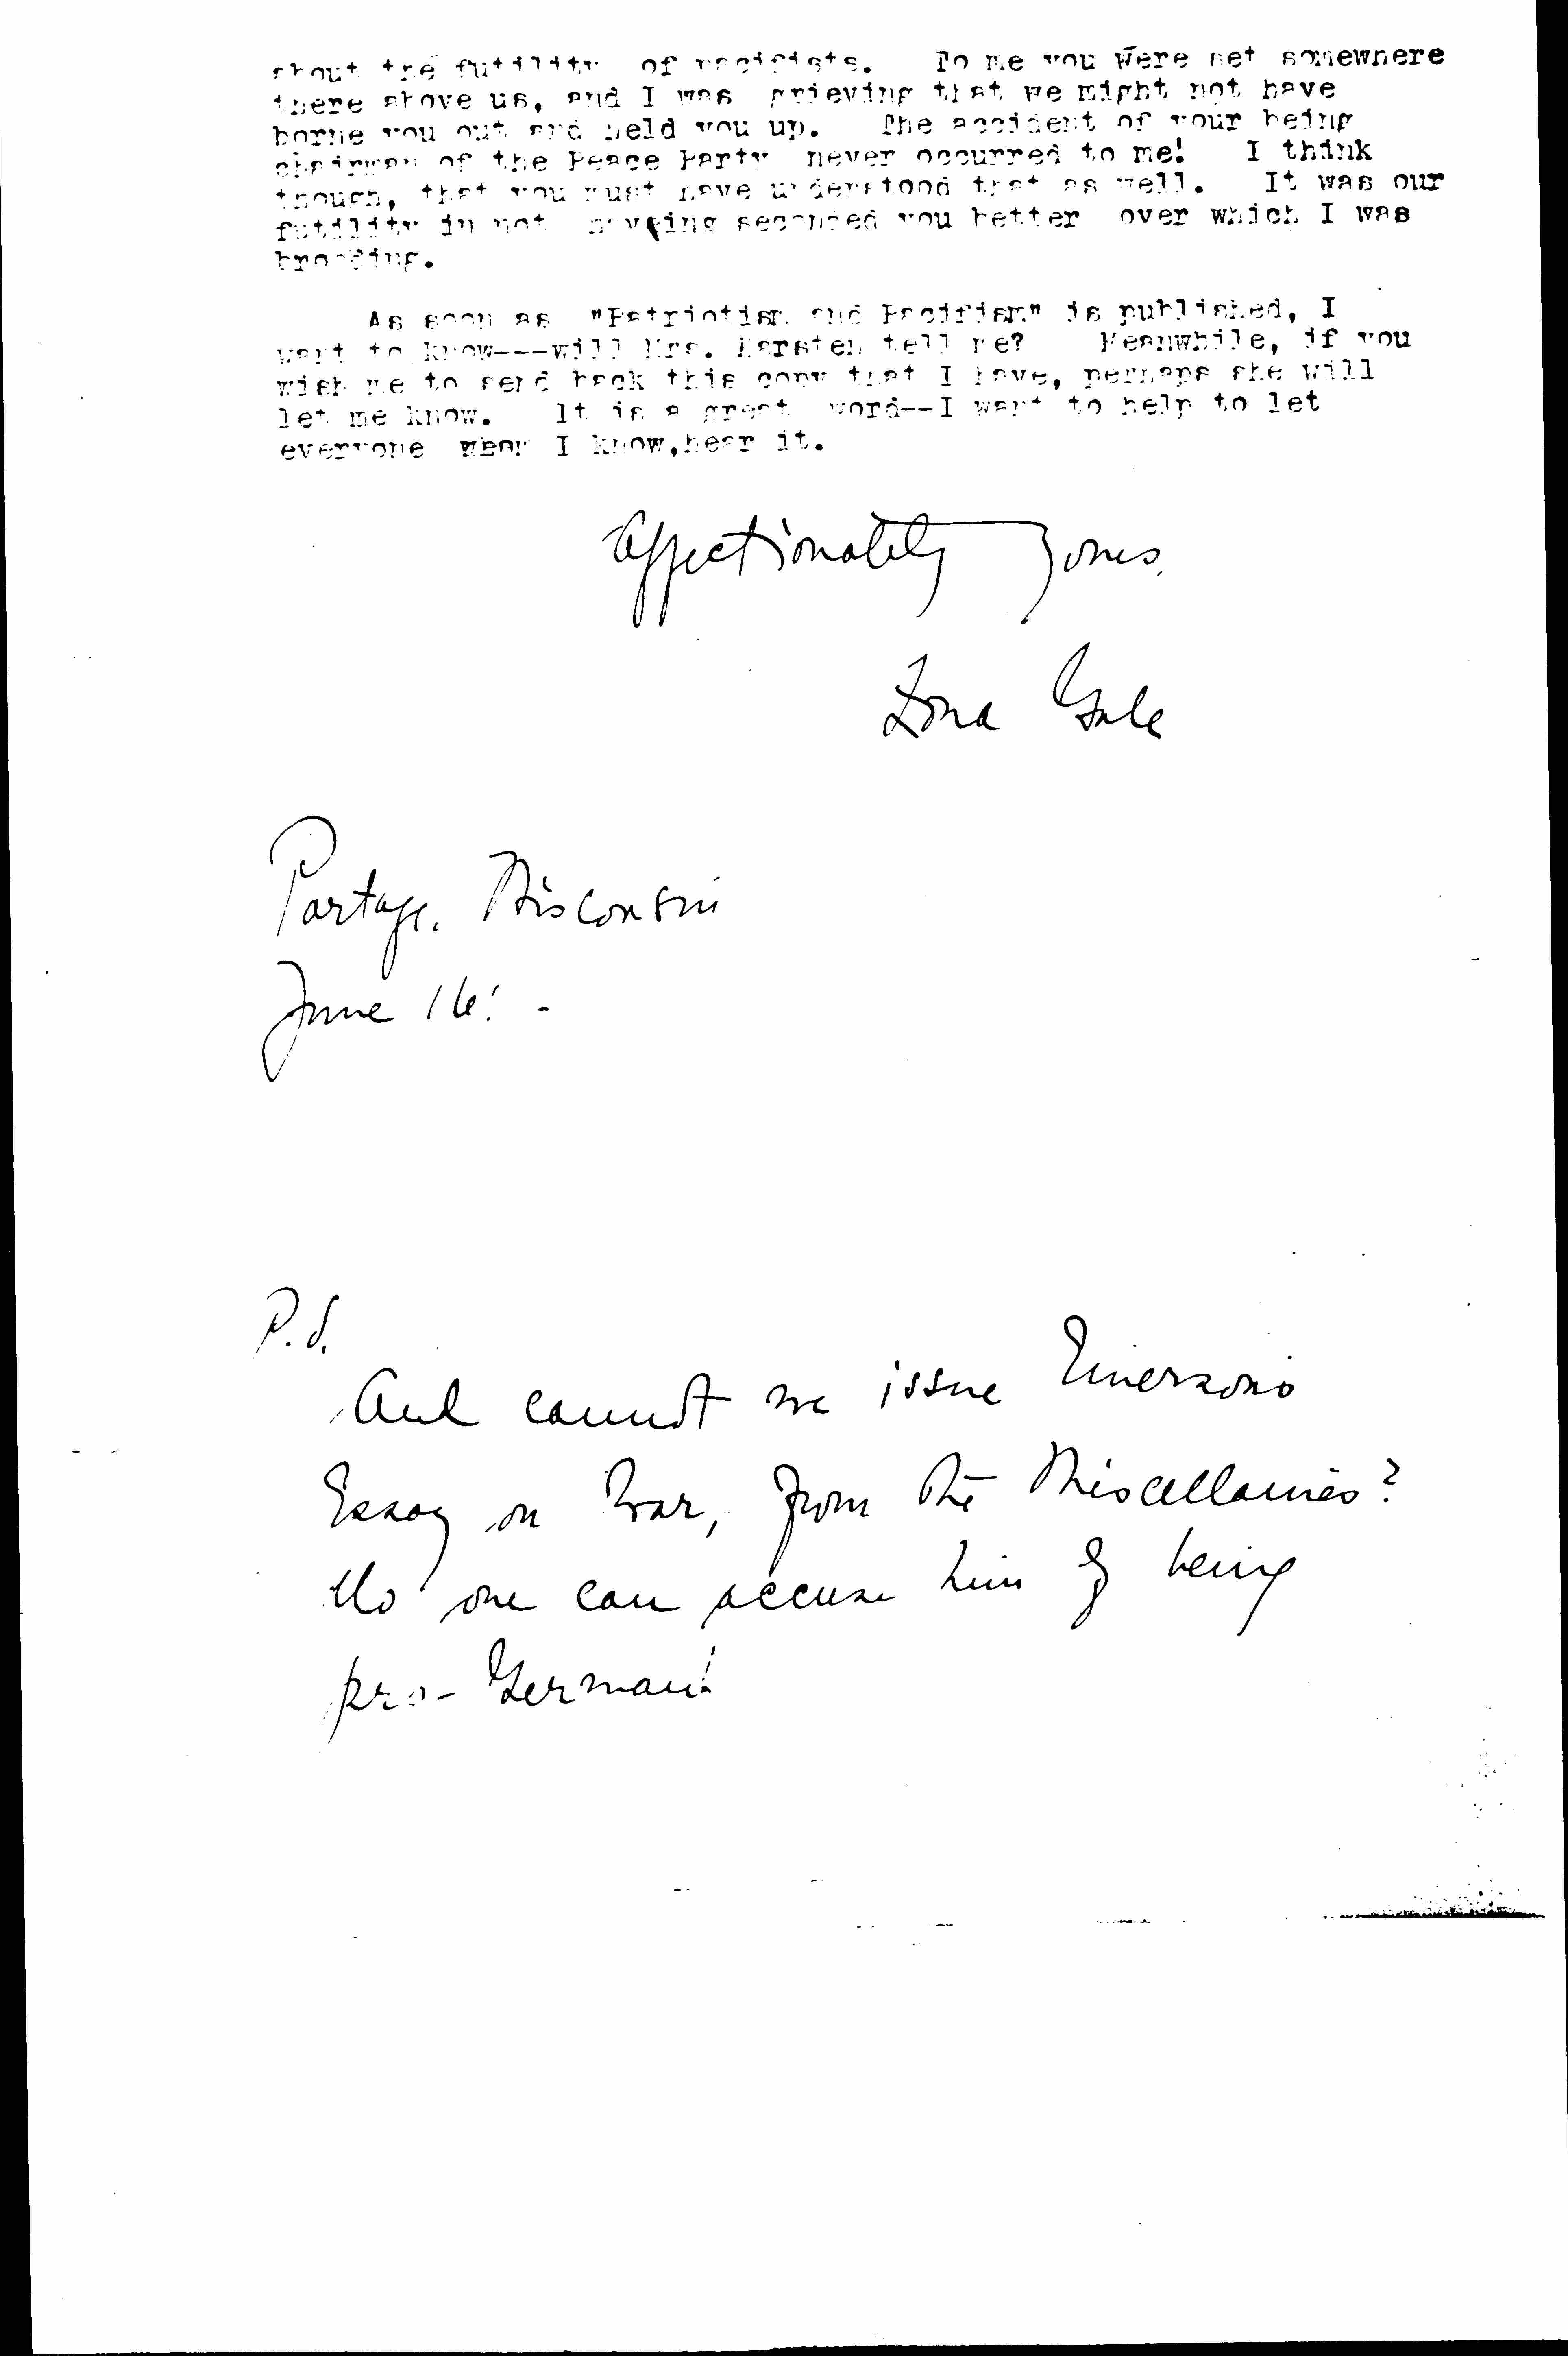 about the futility of pacifists. To me you were set somewhere
there above us, and I was grieving that we might not have
borne you out and held you up. The accident of your being
chairman of the Peace Party never occurred to me! I think
though, that you must have understood that as well. It was our
futility in not having seconded you better over which I was
brooding.
As soon as "Patriotism and Pacifism" is published, I
want to know---will Mrs. Karsten tell me? Meanwhile, if you
wish me to send back this copy that I have, perhaps she will
let me know. It is a great word--I want to help to let
everyone whom I know,hear it.
Affectionately yours,
Zona Gale
Portage, Wisconsin
June 16.
P.S.
And cannot we issue Emerson's
Essay on War, from the Miscellanies?
No one can accuse him of being
pro-German!